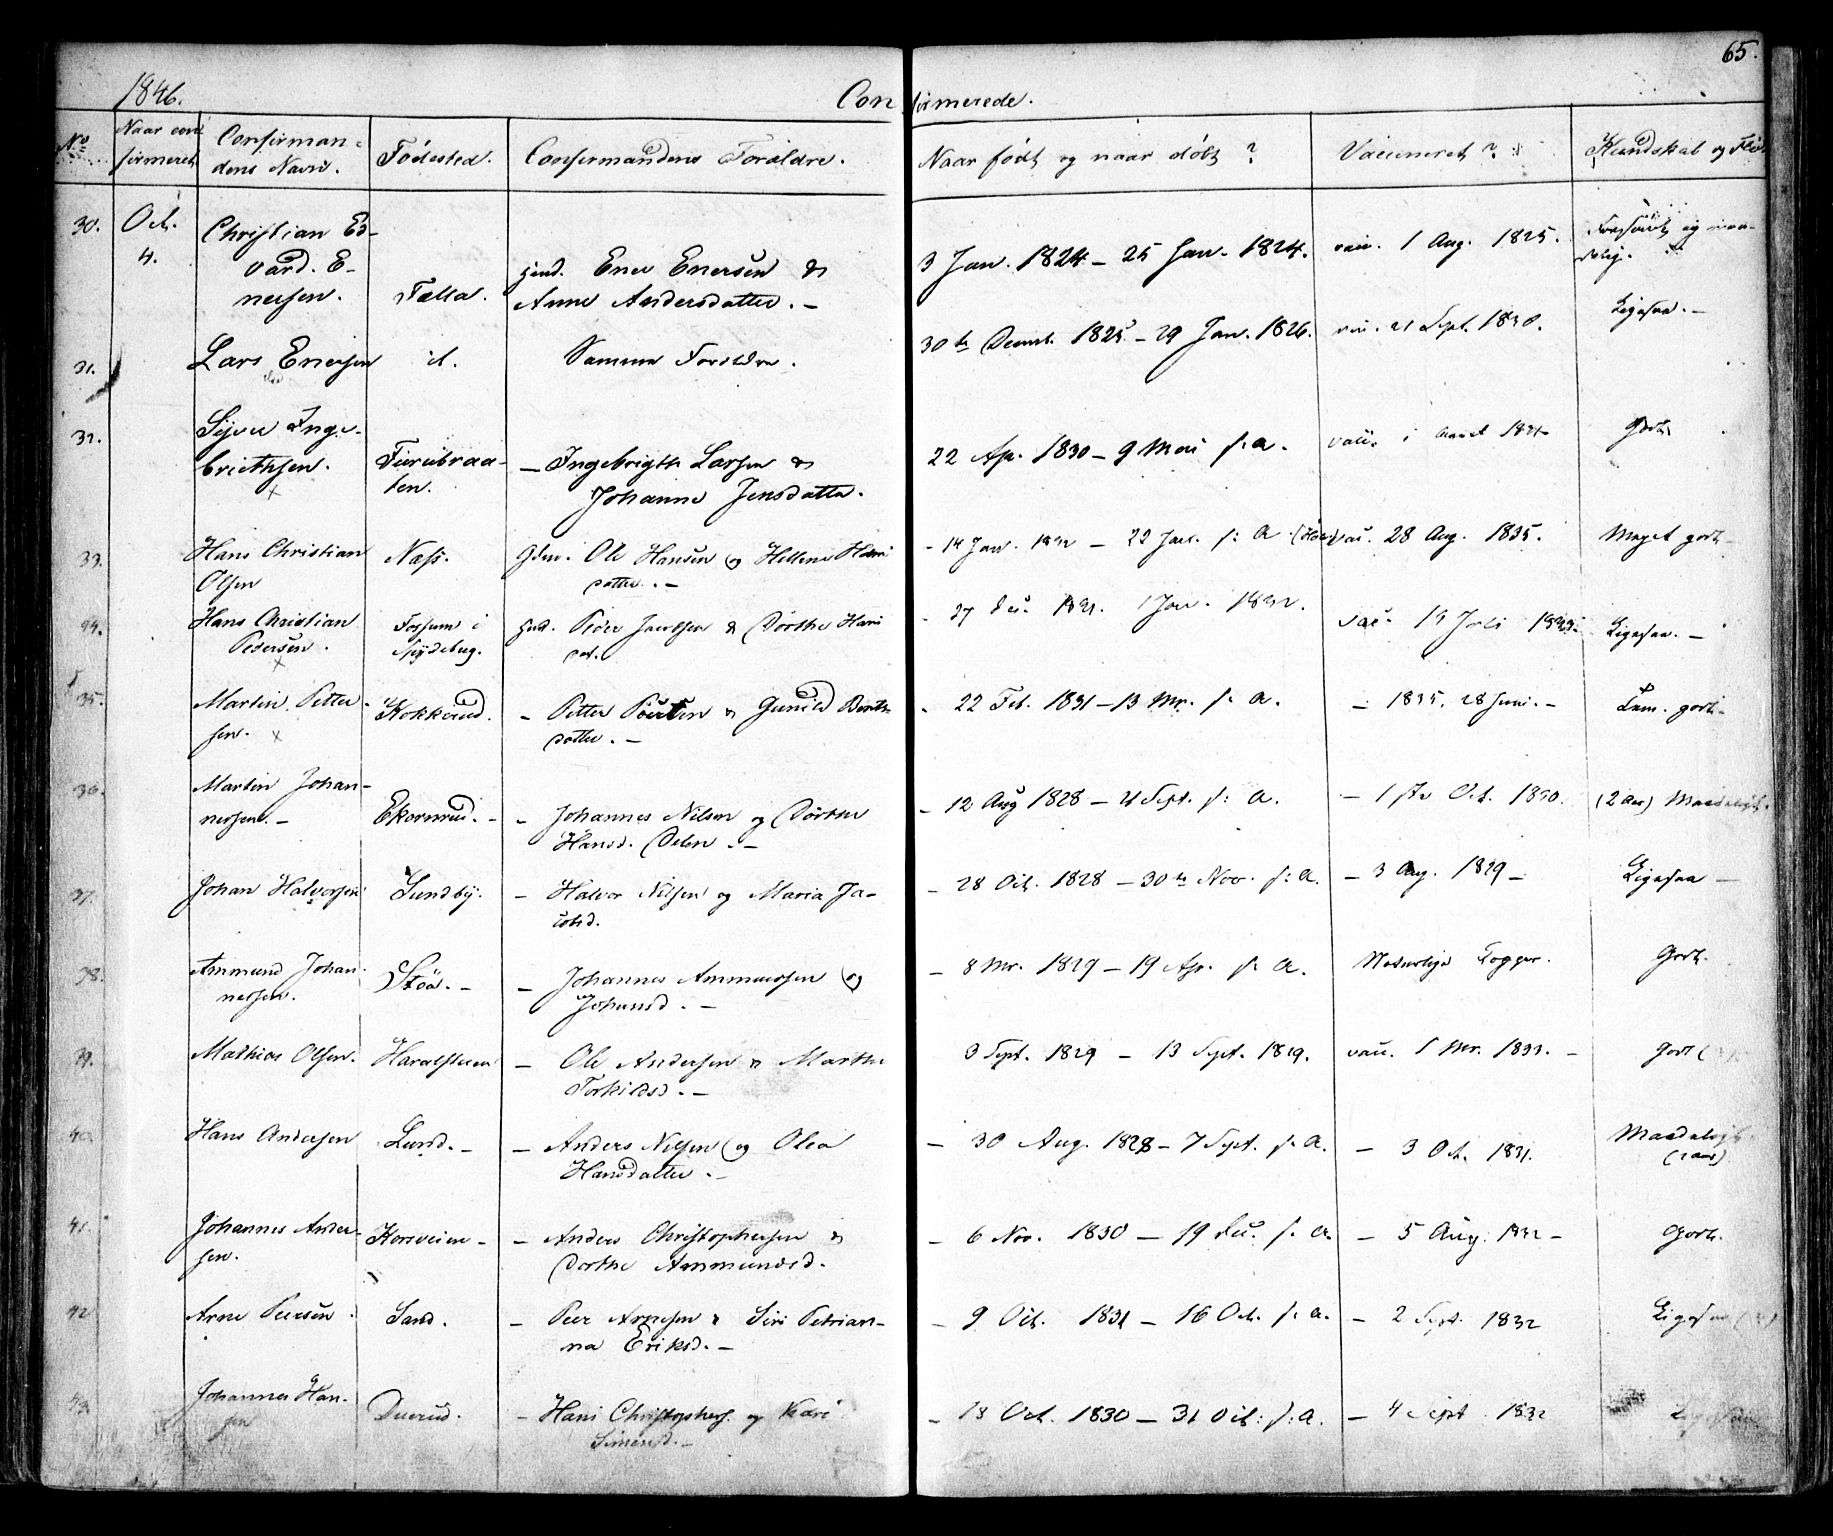 65.
1846.
Confirmerede.
No
Naar con
firmeret
Confirman-
dens Navn.
Födested.
Confirmandens Foraldre.
Naar födt og naar döbt?
Vaccineret?
Kundskab og Flid
30. Oct. 4. Christian Ed-
vard. E-
nersen. Tælla.
gmd. Ener Enersen &
Anne Andersdatter. –
3 Jan. 1824 – 25 Jan. 1824. vac. 1 Aug. 1825.
31. Lars Enersen d. Samme Foreldre.
30te Decemb. 1825 – 29 Jan. 1826. vac. 21 Sept. 1830. Ligesaa. –
32. Sijver Inge-
brethsen. Furubraa-
ten. – Ingebrigth Larsen &
Johanne Jensdatter.
22 Ap. 1830 – 9 Mai s: a. vac. i Godt
33. Hans Christian
Olsen Næss. Gdm. Ole Hansen og Hellene Hans
datter. –
- 14 Jan. 1832 – 22 Jan. s: a. vac. 28 Aug. 1835. Meget godt
34. Hans Christian
Pedersen. Fossum i
Spydeberg. gmd. Peder Jacobsen & Dorthe Hans
dat.
- 27 Dec. 1831. 1 Jan. 1832. vac. 19 Juli Ligesaa. –
35. Martin Petter-
sen. Kokkerud. – Petter & Gunild
datter. –
- 22 Feb. 1831 – 13 Mr. s: a. – 1835. 28 Juni. – Tem. godt
36. Martin Johan-
nessen. – Ekornrud. – – Johannes Nilsen og Dorthe
Hansd. –
- 12 Aug 1828 – 21 Sept. s: a. – 1ste Oct. 1830. (2 aar) Maadeligt.
37. Johan Halvorsen Sundby. – Halvor Nilsen og Maria Ja-
cobsd.
- 28 Oct. 1828 – 30te Nov. s: a. – 3 Aug. 1829 – Ligesaa –
38. Ammund Johan-
nessen. Stöa. – – Johannes Ammundsen og
Johansd. –
- 8 Mr. 1829 – 19 Ap. s: a. Naturlige Kopper. Godt.
39. Mathias Olsen. Haralsteen – Ole Andersen & Marthe
Torkildsd. –
3 Sept. 1829 – 13 Sept. 1829. vac. 1 Mr. 1833. – Godt
40. Hans Andersen Lund. – – Anders Nilsen og Olea
Hansdatter. –
- 30 Aug. 1828 – 7 Sept. s: a. – 3 Oct. 1831. Maadeligt
(2 aar)
41. Johannes Ander-
sen. Korsveien – – Anders Christophersen &
Dorthe Ammundsd.
- 6 Nov. 1830 – 19 Dec. s: a. – 5 Aug. 1832 – Godt.
42 Arne Peersen Sand. – Peer Arnesen & Siri Petrian-
na Eriksd. –
- 9 Oct. 1831 – 16 Oct. s: a. – 2 Sept. 1832 Ligesaa
43. Johannes Han-
sen Duerud. – Hans Christophers. og Kari
Simensd. –
- 18 Oct. 1830 – 31 Oct: s: a. – 4 Sept. 1832 Ligesaa